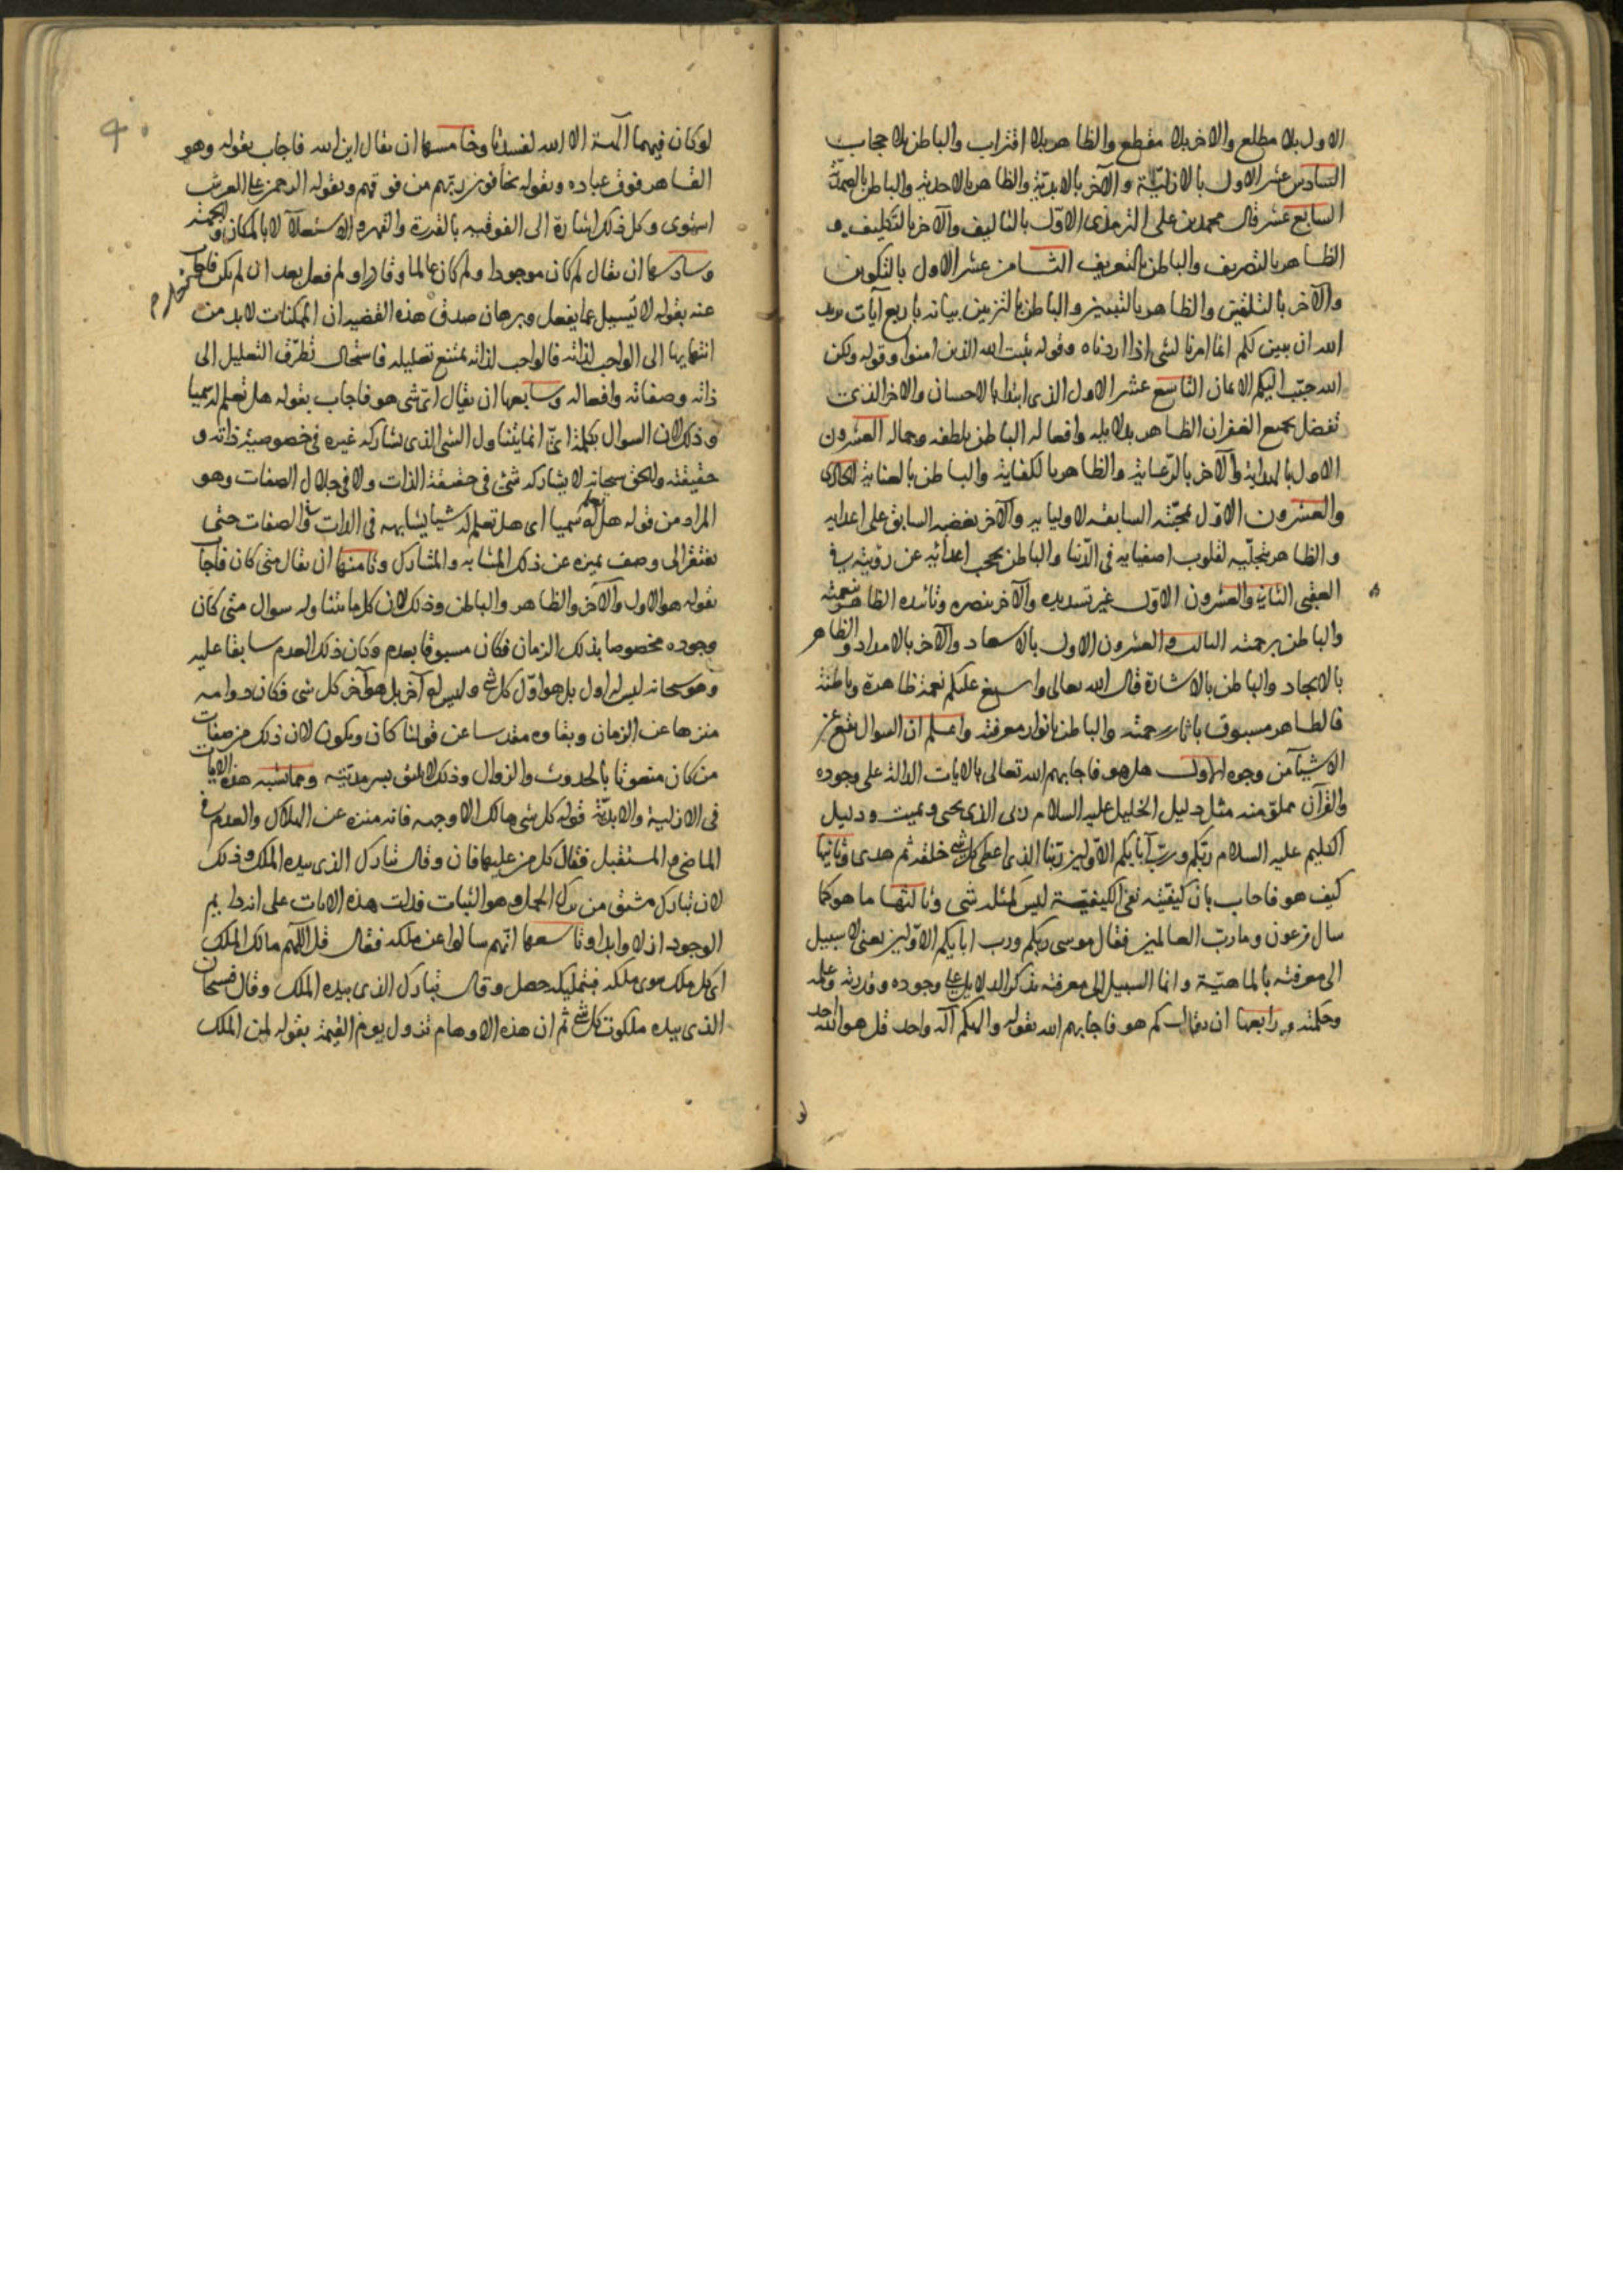 الاول بلا مطلع والاخر بلا مقطع والظاهر بلا اقتراب والباطن بلا حجاب
السادس عشر الاول بالازليّة والآخر بالابديّة والظاهر بالاحدية والباطن بالصمديّة
السابع عشر قال محمد بن على الترمذى الاوّل بالتاليف والآخر بالتكليف و
الظاهر بالتصريف والباطن بالتعريف الثامن عشر الاول بالتكوين
والآخر بالتلقين والظاهر بالتبيين والباطن بالتزيين بيانه باربع آيات يريد
الله ان يبين لكم انما امرنا لشى اذا اردناه وقوله يثبت الله الذين امنوا وقوله ولكن
الله حبّب اليكم الايمان التاسع عشر الاول الذى ابتدا بالاحسان والاخر الذى
تفضل بجميع الغفران الظاهر بدلايله وافعاله الباطن بلطفه وجماله العشرون
الاول بالهداية والآخر بالرّعاية والظاهر بالكفاية والباطن بالعناية الحادى
والعشرون الاوّل بمحبّته السابقه لاوليايه والآخر بغضبه السابق على اعدايه
والظاهر بتجلّيه لقلوب اصفيايه فى الدّنيا والباطن بحجب اعدائه عن رؤيته فى
العقبى الثانى والعشرون الاوّل بتسديده والآخر بنصره وتائيده الظاهر بنعمته
والباطن برحمته الثالث والعشرون الاول بالاسعاد والآخر بالامداد والظاهر
بالايجاد والباطن بالاشارة قال الله تعالى واسبغ عليكم نعمه ظاهرة وباطنة
فالظاهر مسبوق باثار رحمته والباطن بانوار معرفته واعلم ان السوال يقع عن
الاشيآ من وجوه الاول هل هو فاجابهم الله تعالى بالايات الدالة على وجوده
والقرآن مملوّ منه مثل دليل الخليل عليه السلام ربى الذى يحيى ويميت ودليل
الكليم عليه السلام ربّكم وربّ آبايكم الاوّلين ربّنا الذى اعطى كل شى خلقه ثم هدى وثانيها
كيف هو فاجاب بان كيفيّته نفى الكيفيّة ليس كمثله شى وثالثها ما هو كما
سال فرعون وما ربّ العالمين فقال موسى ربكم ورب ابايكم الاوّلين يعنى لا سبيل
الى معرفته بالماهيّة وانما السبيل الى معرفته بذكر الدلايل على وجوده وقدرته وعلمه
وحكمته ورابعها ان يقال كم هو فاجابهم الله بقوله والهكم آله واحد قل هو الله احد
لو
لو كان فيهما آلهة الا الله لفسدتا وخامسها ان يقال اين الله فاجاب بقوله وهو
القاهر فوق عباده وبقوله يخافون ربّهم من فوقهم وبقوله الرحمن على العرش
استوى وكل ذلك اشارة الى الفوقيه بالقدرة والقهر والاستعلآ لا بالمكان والجهة
وسادسها ان يقال لم كان موجودا ولم كان عالما وقادرا ولم فعل بعد ان لم يكن فاجاب
عنه بقوله لا يسيل عما يفعل وبرهان صدق هذه القضيه ان الممكنات لا بد من
انتهايها الى الواجب لذاته فالواجب لذاته يمتنع تعليله فاستحال تطرّق التعليل الى
ذاته وصفاته وافعاله وسابعها ان يقال اىّ شى هو فاجاب بقوله هل تعلم له سميا
وذلك لان السوال بكلمة اىّ انما يتناول الشى الذى يشاركه غيره فى خصوصية ذاته و
حقيقته والحق سبحانه لا يشاركه شئ فى حقيقة الذات ولا فى جلال الصفات وهو
المراد من قوله هل تعلم له سميا اى هل تعلم له شيا يشابهه فى الذات والصفات حتى
يفتقر الى وصف يميزه عن ذلك المشابه والمشارك وثامنها ان يقال متى كان فاجاب
بقوله هو الاول والآخر والظاهر والباطن وذلك لان كل ما يتناوله سوال متى كان
وجوده مخصوصا بذلك الزمان فكان مسبوقا بعدم وكان ذلك العدم سابقا عليه
وهو سبحانه ليس له اول بل هو اوّل كل شى وليس له آخر بل هو آخر كل شى فكان دوامه
منزها عن الزمان وبقاوه مقدسا عن قولنا كان ويكون لان ذلك من صفات
من كان منعوتا بالحدوث والزوال وذلك لا يليق بسرمديّته ومما يشبه هذه الايات
فى الازلية والابديّة قوله كل شى هالك الا وجهه فانه منزه عن الهلاك والعدم فى
الماضى والمستقبل فقال كل من عليها فان وقال تبارك الذى بيده الملك وذلك
لان تبارك مشتق من برك الجمل وهو الثبات فدلت هذه الايات على انه دايم
الوجود ازلا وابدا وتاسعها انّهم سالوا عن ملكه فقال قل اللّهم مالك الملك
اى كل ملك سوى ملكه فبتمليكه حصل وقال تبارك الذى بيده الملك وقال فسبحان
الذى بيده ملكوت كل شى ثم ان هذه الاوهام تزول يوم القيمة بقوله لمن الملك